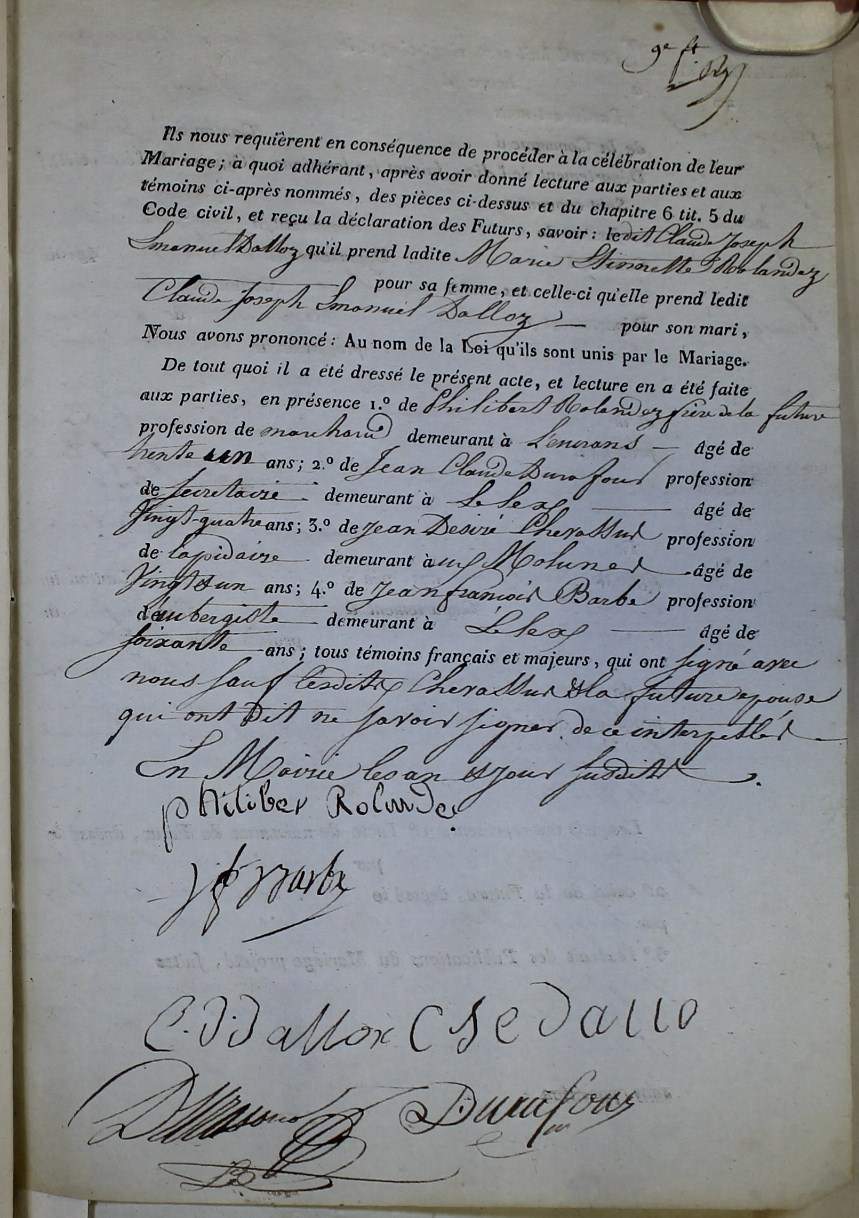 9e ft
Ils nous requièrent en conséquence de procéder à la célébration de leur
Mariage; à quoi adhérant, après avoir donné lecture aux parties et aux
témoins ci-après nommés, des pièces ci-dessus et du chapitre 6 tit. 5 du
Code civil, et reçu la déclaration des Futurs, savoir: ledit Claude Joseph
Emanuel Dalloz qu'il prend ladite Marie Etiennette Rolandez
pour sa femme, et celle-ci qu'elle prend ledit
Claude Joseph Emanuel Dalloz — pour son mari,
Nous avons prononcé: Au nom de la Loi qu'ils sont unis par le Mariage.
De tout quoi il a été dressé le présent acte, et lecture en a été faite
aux parties, en présence 1.º de Philibert Rolandez frère de la future
profession de marchand demeurant à Lenrans — âgé de
trente un ans; 2.º de Jean Claude Durafour profession
de secretaire demeurant à Lelex — âgé de
Vingt-quatre ans; 3.º de Jean Desiré Chevassus profession
de lapidaire demeurant à aux Molunes âgé de
Vingt & un ans; 4.º de Jean françois Barbe profession
de aubergiste demeurant à Lelex — âgé de
soixante ans; tous témoins français et majeurs, qui ont signé avec
nous sauf lesdits Chevassus & la future épouse
qui ont dit ne savoir signer de ce interpellés
En Mairie les an & jour susdits.
philiber Rolande
jf Barbe
C. J. Dallox C J e Dallo
Durafour